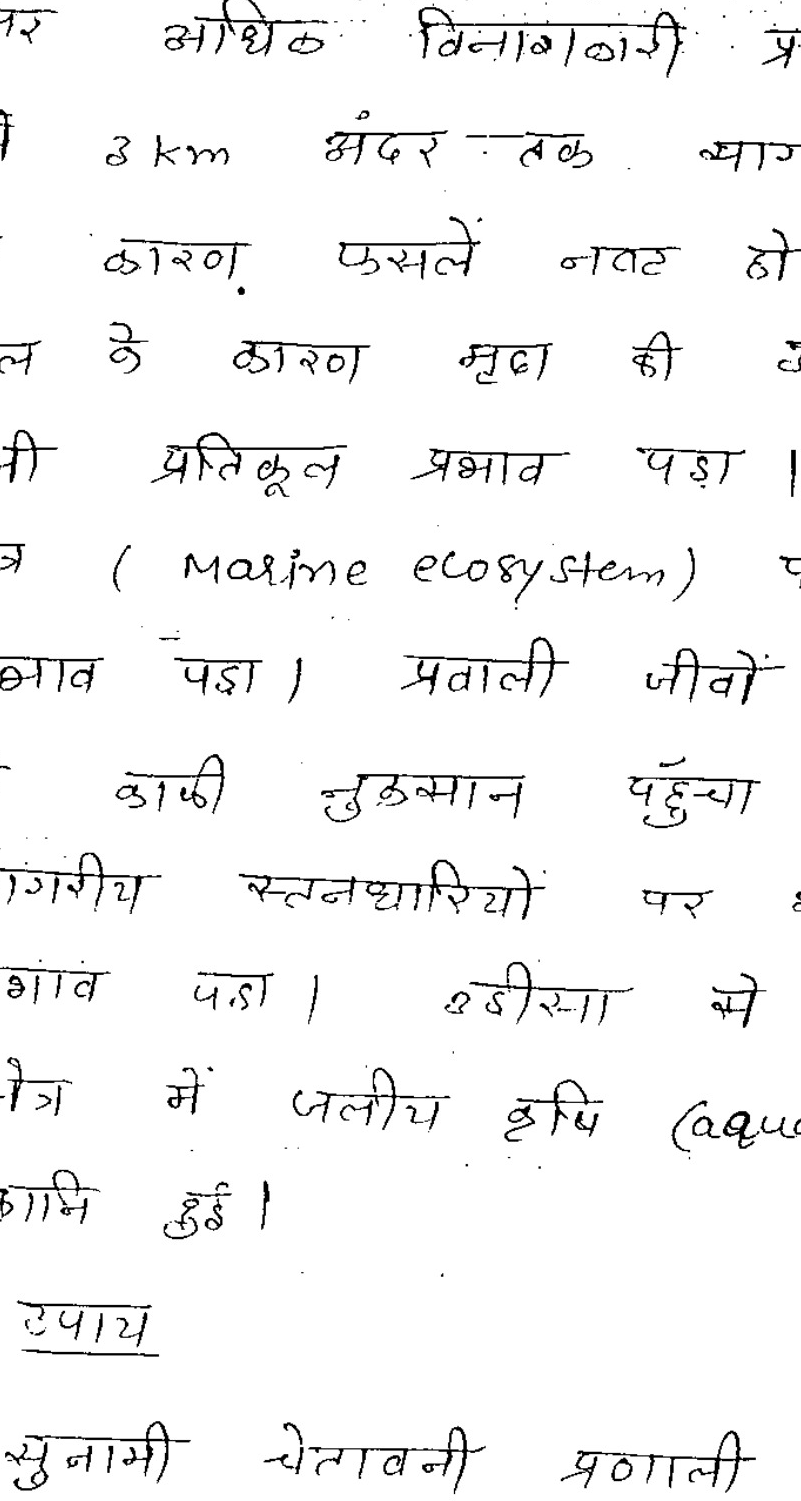 पर अधिक विनाशकारी प्र
3 km अंदर तक
कारण फसलें नष्ट हो
के कारण मृदा की
प्रतिकूल प्रभाव पड़ा ।
( Marine ecosystem) प
भाव पड़ा । प्रवाली जीवों
काफी नुकसान पहुँचा
ागरीय स्तनधारियों पर
भाव पड़ा । उडीसा से
में जलीय कृषि (aqua
हुई ।
उपाय
सुनामी चेतावनी प्रणाली